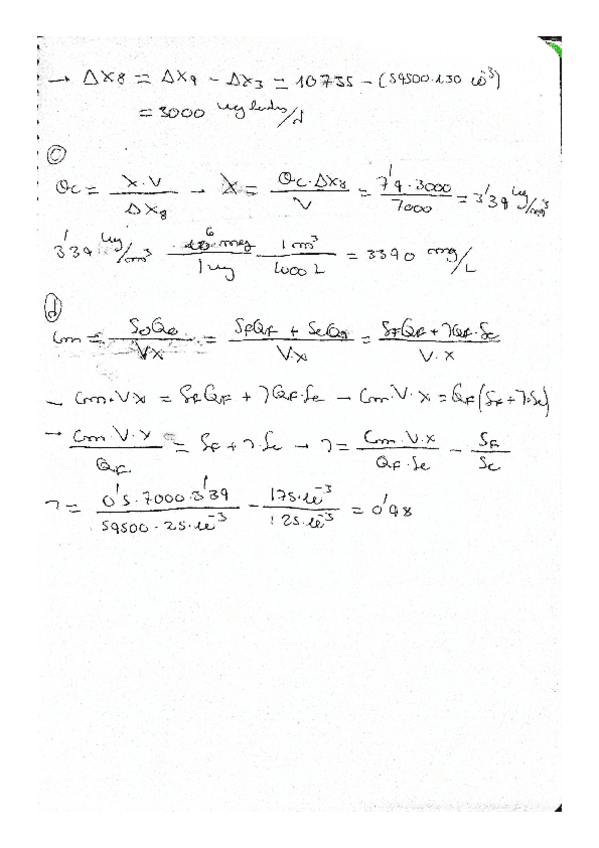 → ΔX8 = ΔX9 - ΔX3 = 10735 - (59500·130·10⁻³)
= 3000 kg lodos/d
ⓒ
θc = X·V/ΔX8 → X = θc·ΔX8/V = 7'9·3000/7000 = 3'39 kg/m³
3'39 kg/m³ 10⁶ mg/1 kg 1 m³/1000 L = 3390 mg/L
ⓓ
Cm = S0Q0/VX = SFQF + SeQr/VX = SFQF + rQF·Se/V·X
→ Cm·V·X = SFQF + rQF·Se → Cm·V·X = QF(SF + r·Se)
→ Cm·V·X/QF = SF + r·Se → r = Cm·V·X/QF·Se - SF/Se
r = 0'5·7000·3'39/59500·25·10⁻³ - 175·10⁻³/25·10⁻³ = 0'98